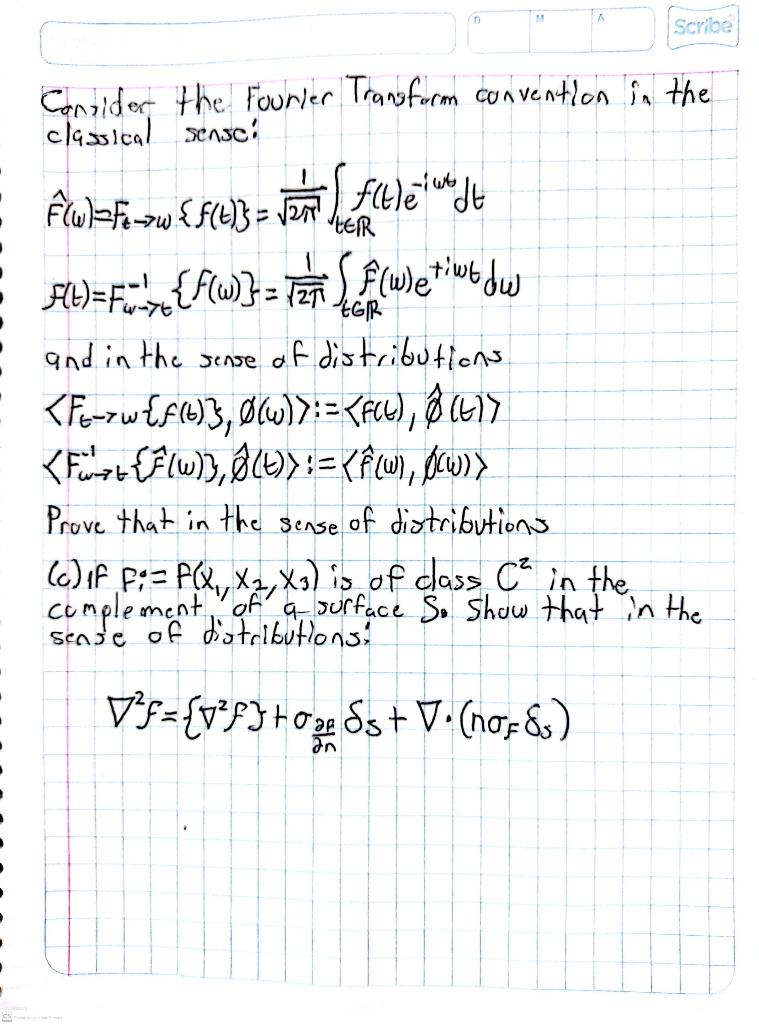 D M A Scribe
Consider the Fourier Transform convention in the
classical sense:
F̂(w)=F_{t→w}{f(t)} = 1/√2π ∫_{t∈ℝ} f(t)e^{-iwt}dt
f(t)=F^{-1}_{w→t}{f(w)} = 1/√2π ∫_{t∈ℝ} F̂(w)e^{+iwt}dw
and in the sense of distributions
<F_{t→w}{f(t)}, Ø(w)>:=<f(t), Ø̂(t)>
<F^{-1}_{w→t}{F̂(w)}, Ø̂(t)>:=<f̂(w), Ø(w)>
Prove that in the sense of distributions
(c) if F:= F(x₁, x₂, x₃) is of class C² in the
complement of a surface S. Show that in the
sense of distributions:
∇²f={∇²f}+σ_{∂F/∂n} δ_S + ∇·(nσ_F δ_S)
CS